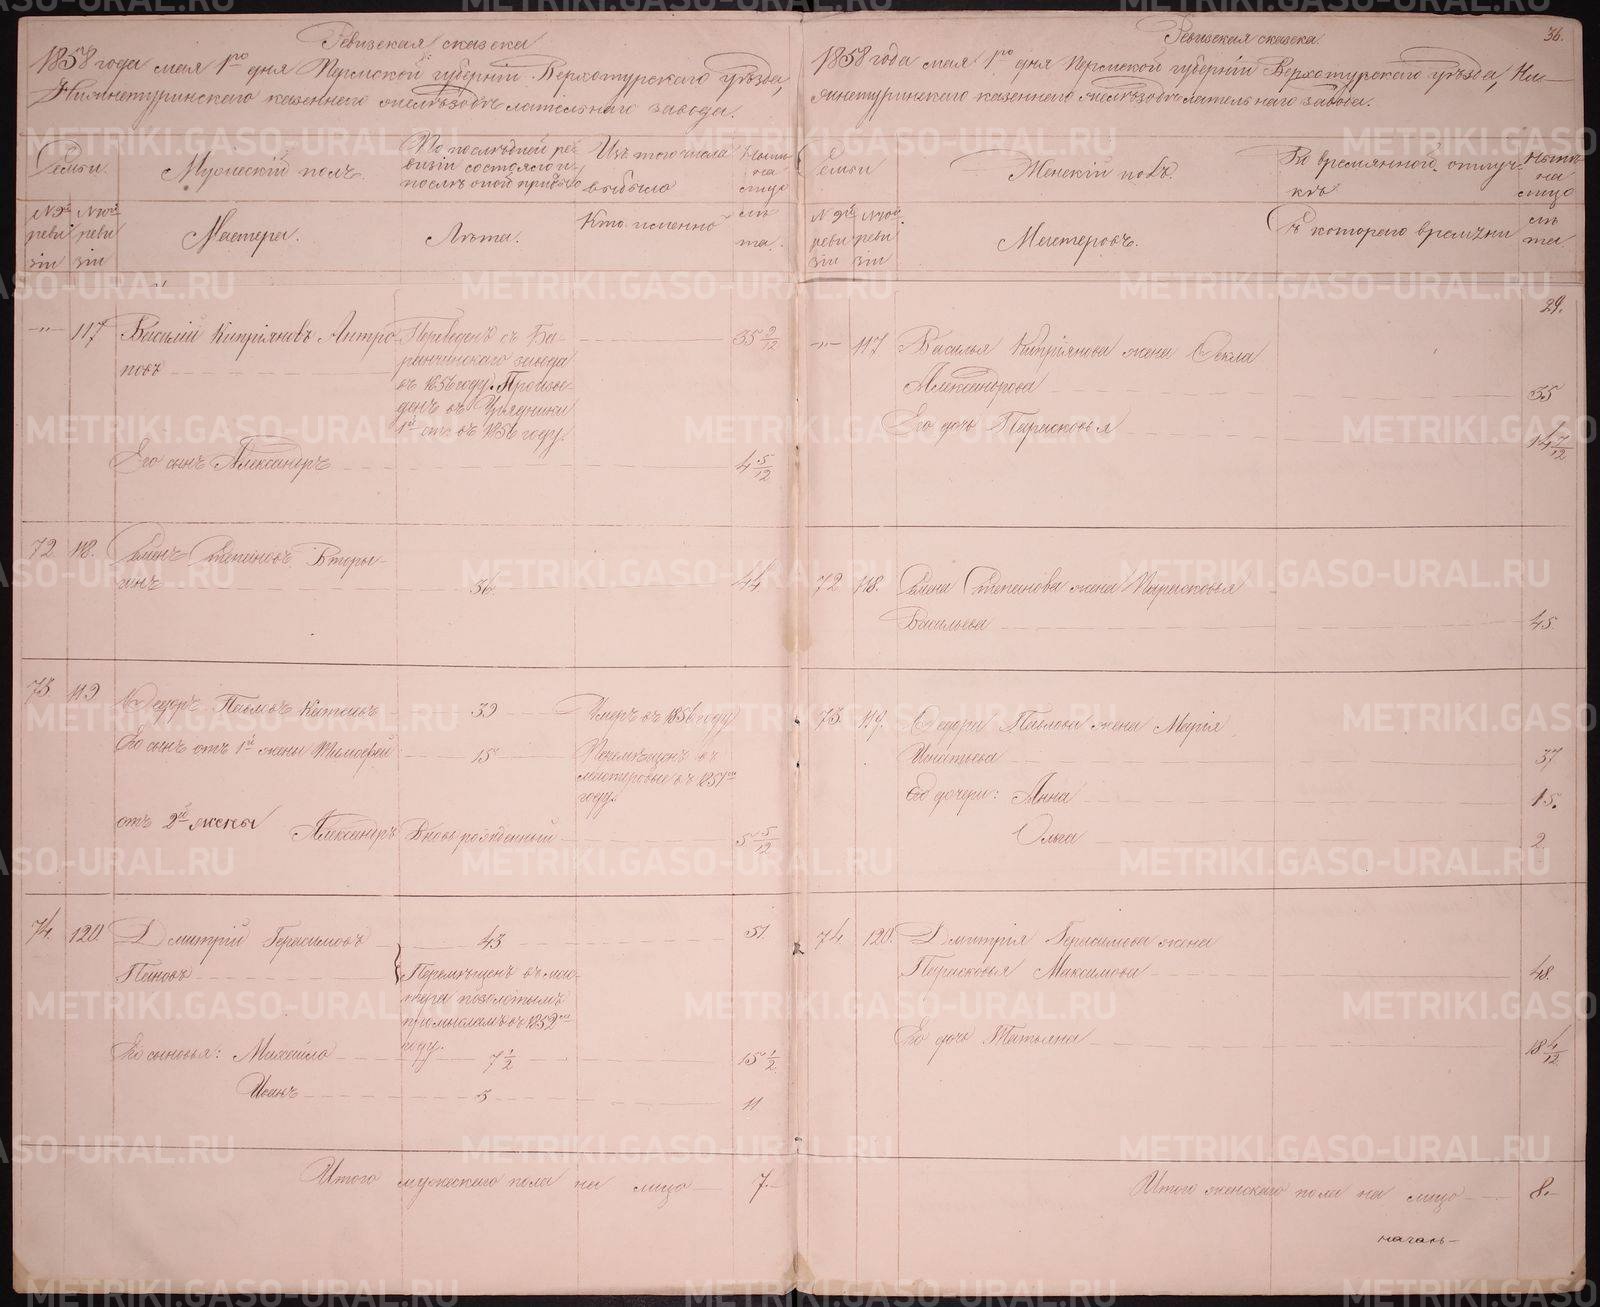 Ревизская сказка
1858 года мая 1го дня Пермской губерніи Верхотурскаго уѣзда,
Нижнетуринскаго казеннаго желѣзодѣлательнаго завода.
Семьи
Мужескій полъ.
По послѣдней ре-
визіи состояло и
послѣ оной прибыло
Изъ того числа
выбыло
Нынѣ
на
лицо
№ 9й
реви
зіи
№ 10й
реви
зіи
Мастера.
Лѣта.
Кто именно
лѣ
та.
117 Василій Кипріяновъ Антро
повъ
Переведенъ съ Ба-
ранчинскаго завода
въ 1856 году. Произве-
денъ въ Урядники
1й ст. въ 1856 году.
35 2/12
Его сынъ Александръ 4 5/12
72 118. Семенъ Степановъ Вторы-
гинъ 36. 44.
73 119 Федоръ Павловъ Катаевъ 39 Умеръ въ 1856 году
Его сынъ отъ 1й жены Тимофей 15 Перемѣщенъ въ
мастеровые въ 1851м
году.
отъ 2й жены Александръ Вновь рожденный 5 5/12
74. 120. Дмитрій Герасимовъ 43 51.
Пановъ
Перемѣщенъ въ мас-
тера по золотымъ
промысламъ въ 1852м
году.
Его сыновья: Михайло 7 1/2 15 1/2
Иванъ 3 11
Итого мужескаго пола на лицо 7.
36.
Ревизская сказка.
1858 года мая 1го дня Пермской губерніи Верхотурскаго уѣзда, Ни-
жнетуринскаго казеннаго желѣзодѣлательнаго завода.
Семьи
Женскій полъ.
Во временной отлуч-
кѣ
Нынѣ
на
лицо
№ 9й
реви
зіи
№ 10й
реви
зіи
Мастеровъ.
Съ котораго времѣни
лѣ
та
29.
117 Василья Кипріянова жена Фекла
Александрова 35
Его дочь Парасковья 14 7/12
72 118. Семена Степанова жена Парасковья
Васильева 45.
73. 119. Федора Павлова жена Марія
Игнатьева 37
Его дочери: Анна 15.
Ольга 2.
74 120. Дмитрія Герасимова жена
Парасковья Максимова 48.
Его дочь Татьяна 18 4/12
Итого женскаго пола на лицо 8.